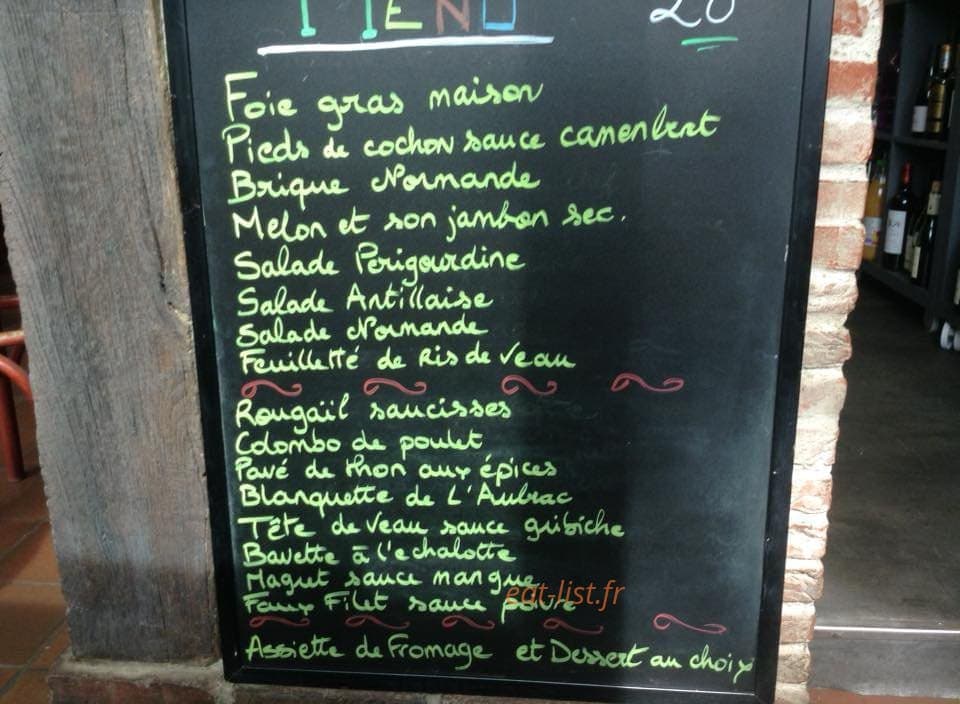 MENU 20
Foie gras maison
Pieds de cochon sauce camenbert
Brique Normande
Melon et son jambon sec.
Salade Perigourdine
Salade Antillaise
Salade Normande
Feuilletté de Ris de Veau
Rougail saucisses
Colombo de poulet
Pavé de thon aux épices
Blanquette de L'Aubrac
Tête de Veau sauce gribiche
Bavette à l'echalotte
Magret sauce mangue
Faux Filet sauce poivre
eat-list.fr
Assiette de Fromage et Dessert au choix